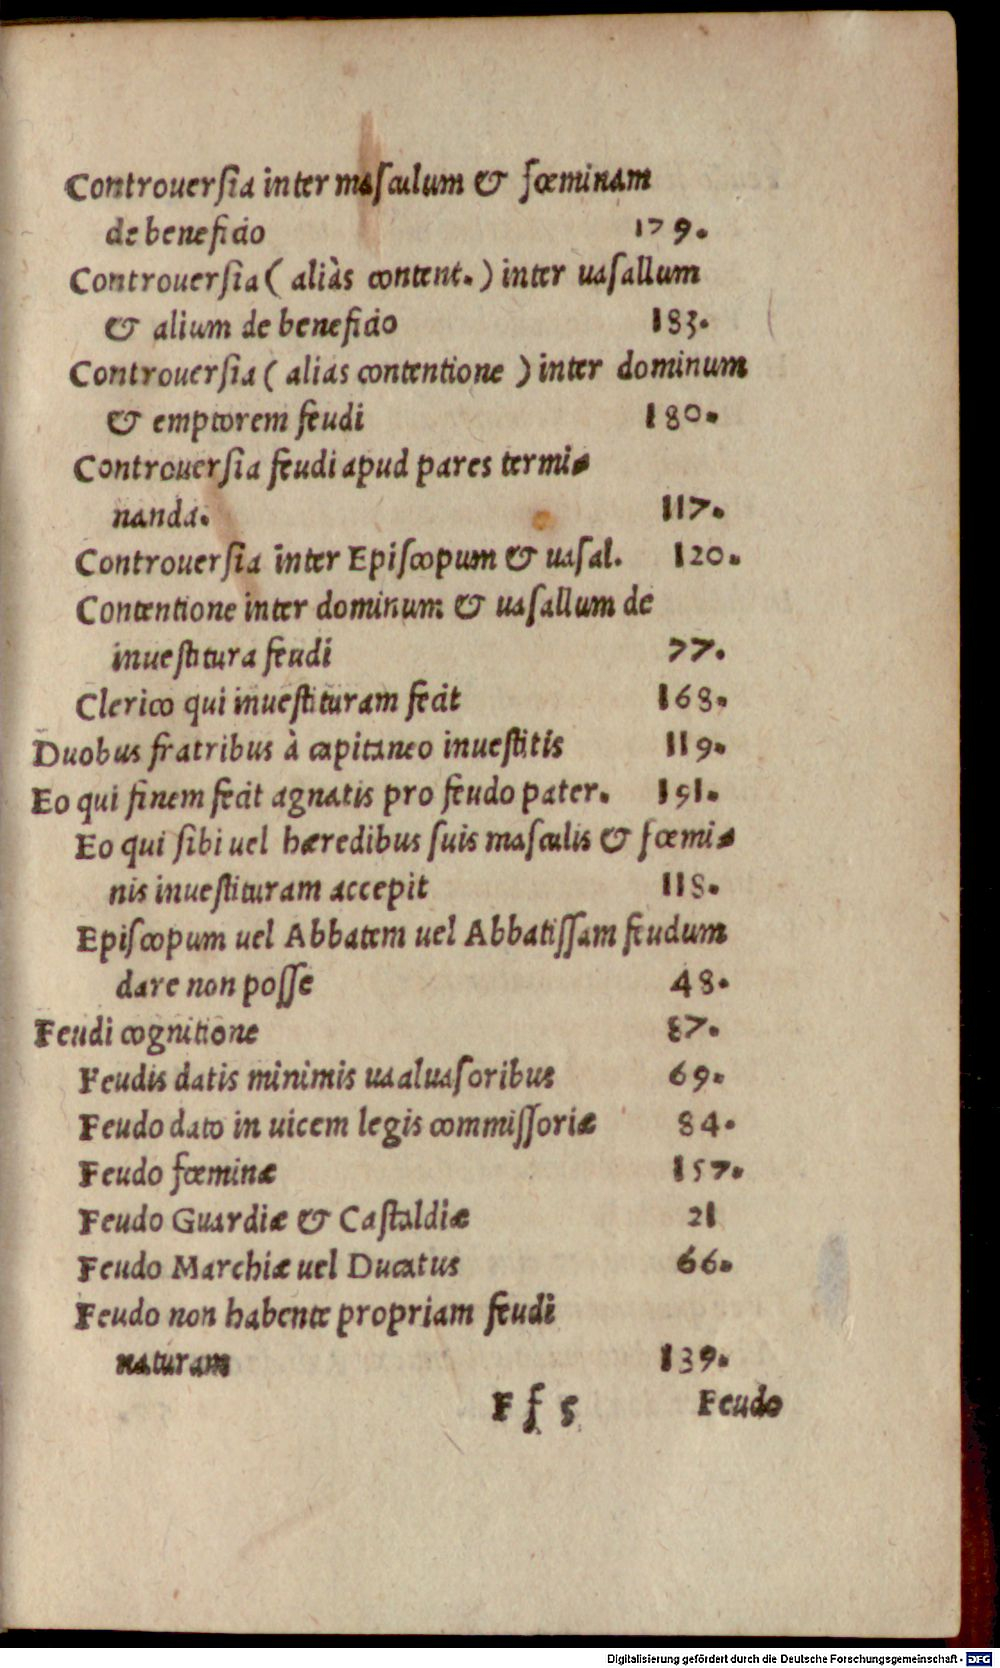 Controuerſia inter maſculum & fœminam
de beneficio 179.
Controuerſia ( aliàs content. ) inter uaſallum
& alium de beneficio 183.
Controuerſia ( alias contentione ) inter dominum
& emptorem feudi 180.
Controuerſia feudi apud pares termi-
nanda. 117.
Controuerſia inter Epiſcopum & uaſal. 120.
Contentione inter dominum & uaſallum de
inueſtitura feudi 77.
Clerico qui inueſtituram fecit 168.
Duobus fratribus à capitaneo inueſtitis 119.
Eo qui finem fecit agnatis pro feudo pater. 191.
Eo qui ſibi uel hæredibus ſuis maſculis & fœmi-
nis inueſtituram accepit 118.
Epiſcopum uel Abbatem uel Abbatiſſam feudum
dare non poſſe 48.
Feudi cognitione 87.
Feudis datis minimis uaaluaſoribus 69.
Feudo dato in uicem legis commiſſoriæ 84.
Feudo fœminæ 157.
Feudo Guardiæ & Caſtaldiæ 21
Feudo Marchiæ uel Ducatus 66.
Feudo non habente propriam feudi
naturam 139.
F f 5 Feudo
Digitalisierung gefördert durch die Deutsche Forschungsgemeinschaft - DFG